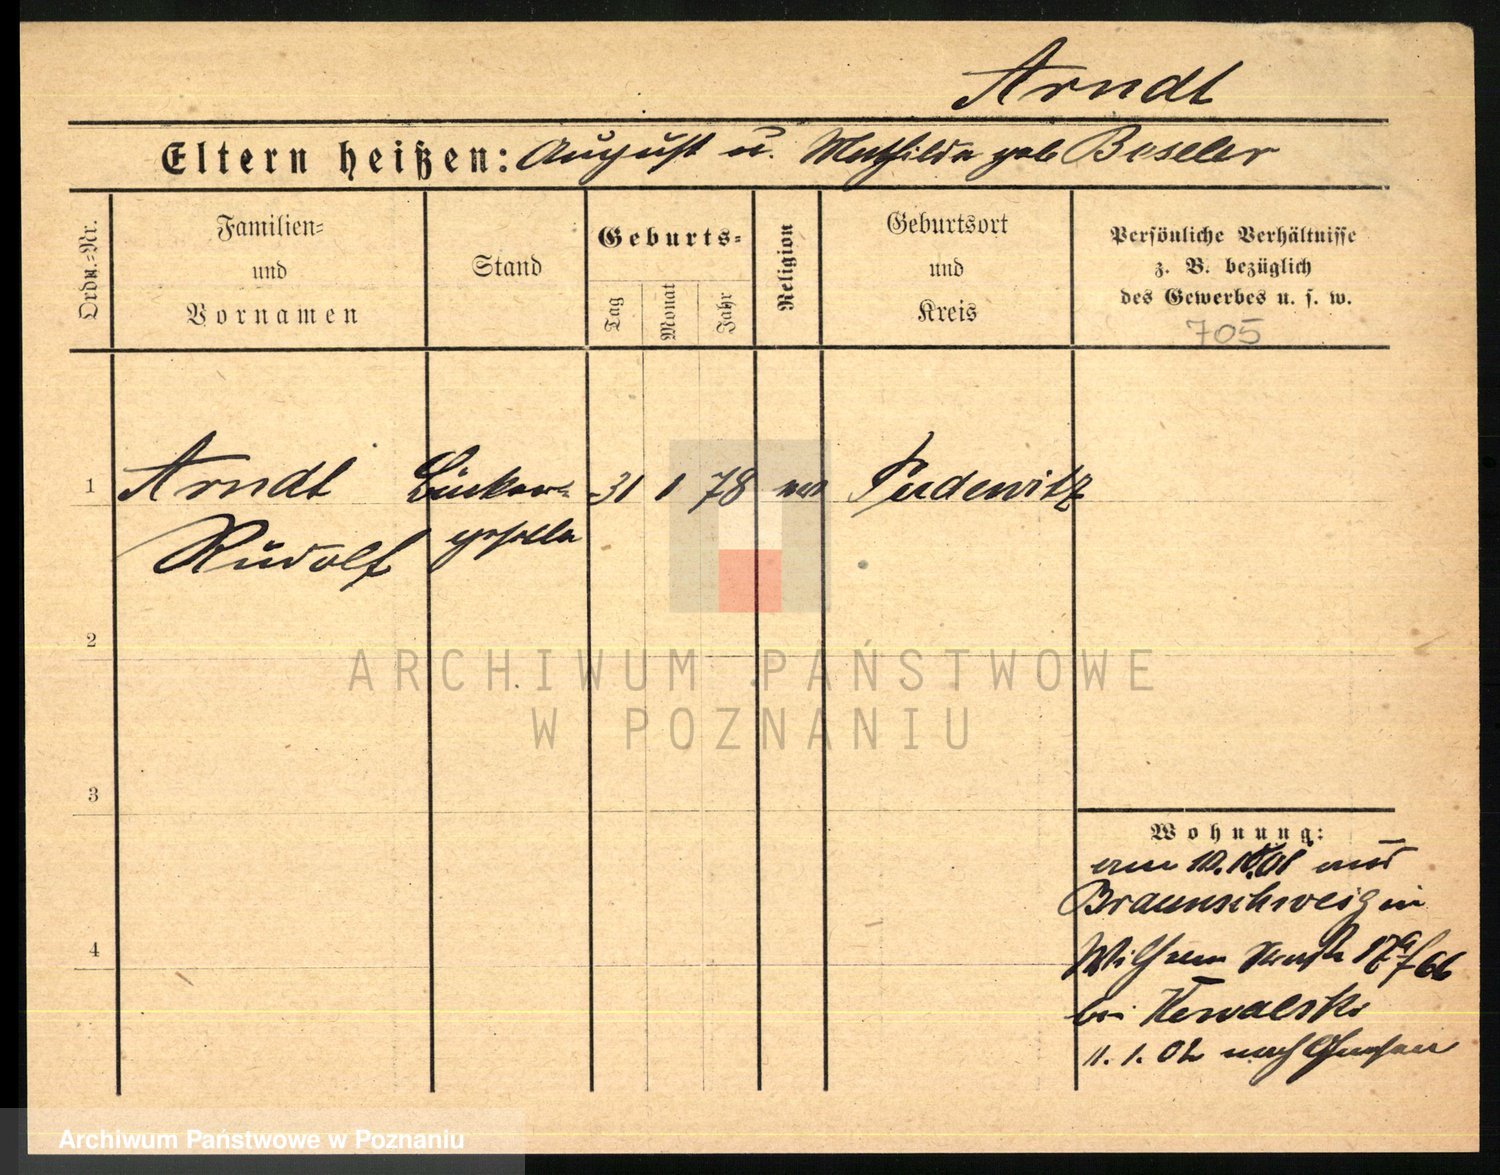 Arndt
Eltern heißen: August u. Mathilde geb Beseler
Ordn.=Nr.
Familien=
und
Vornamen
Stand
Geburts=
Tag
Monat
Jahr
Religion
Geburtsort
und
Kreis
Persönliche Verhältnisse
z. B. bezüglich
des Gewerbes u. s. w.
705
1
Arndt
Rudolf
Bäcker=
geselle
31
1
78
Pudewitz
2
3
4
Wohnung:
am 10.10.01 aus
Braunschweig in
Wilhelm
66
bei Kowalski
11.1.02 nach Gnesen
ARCHIWUM PAŃSTWOWE
W POZNANIU
Archiwum Państwowe w Poznaniu